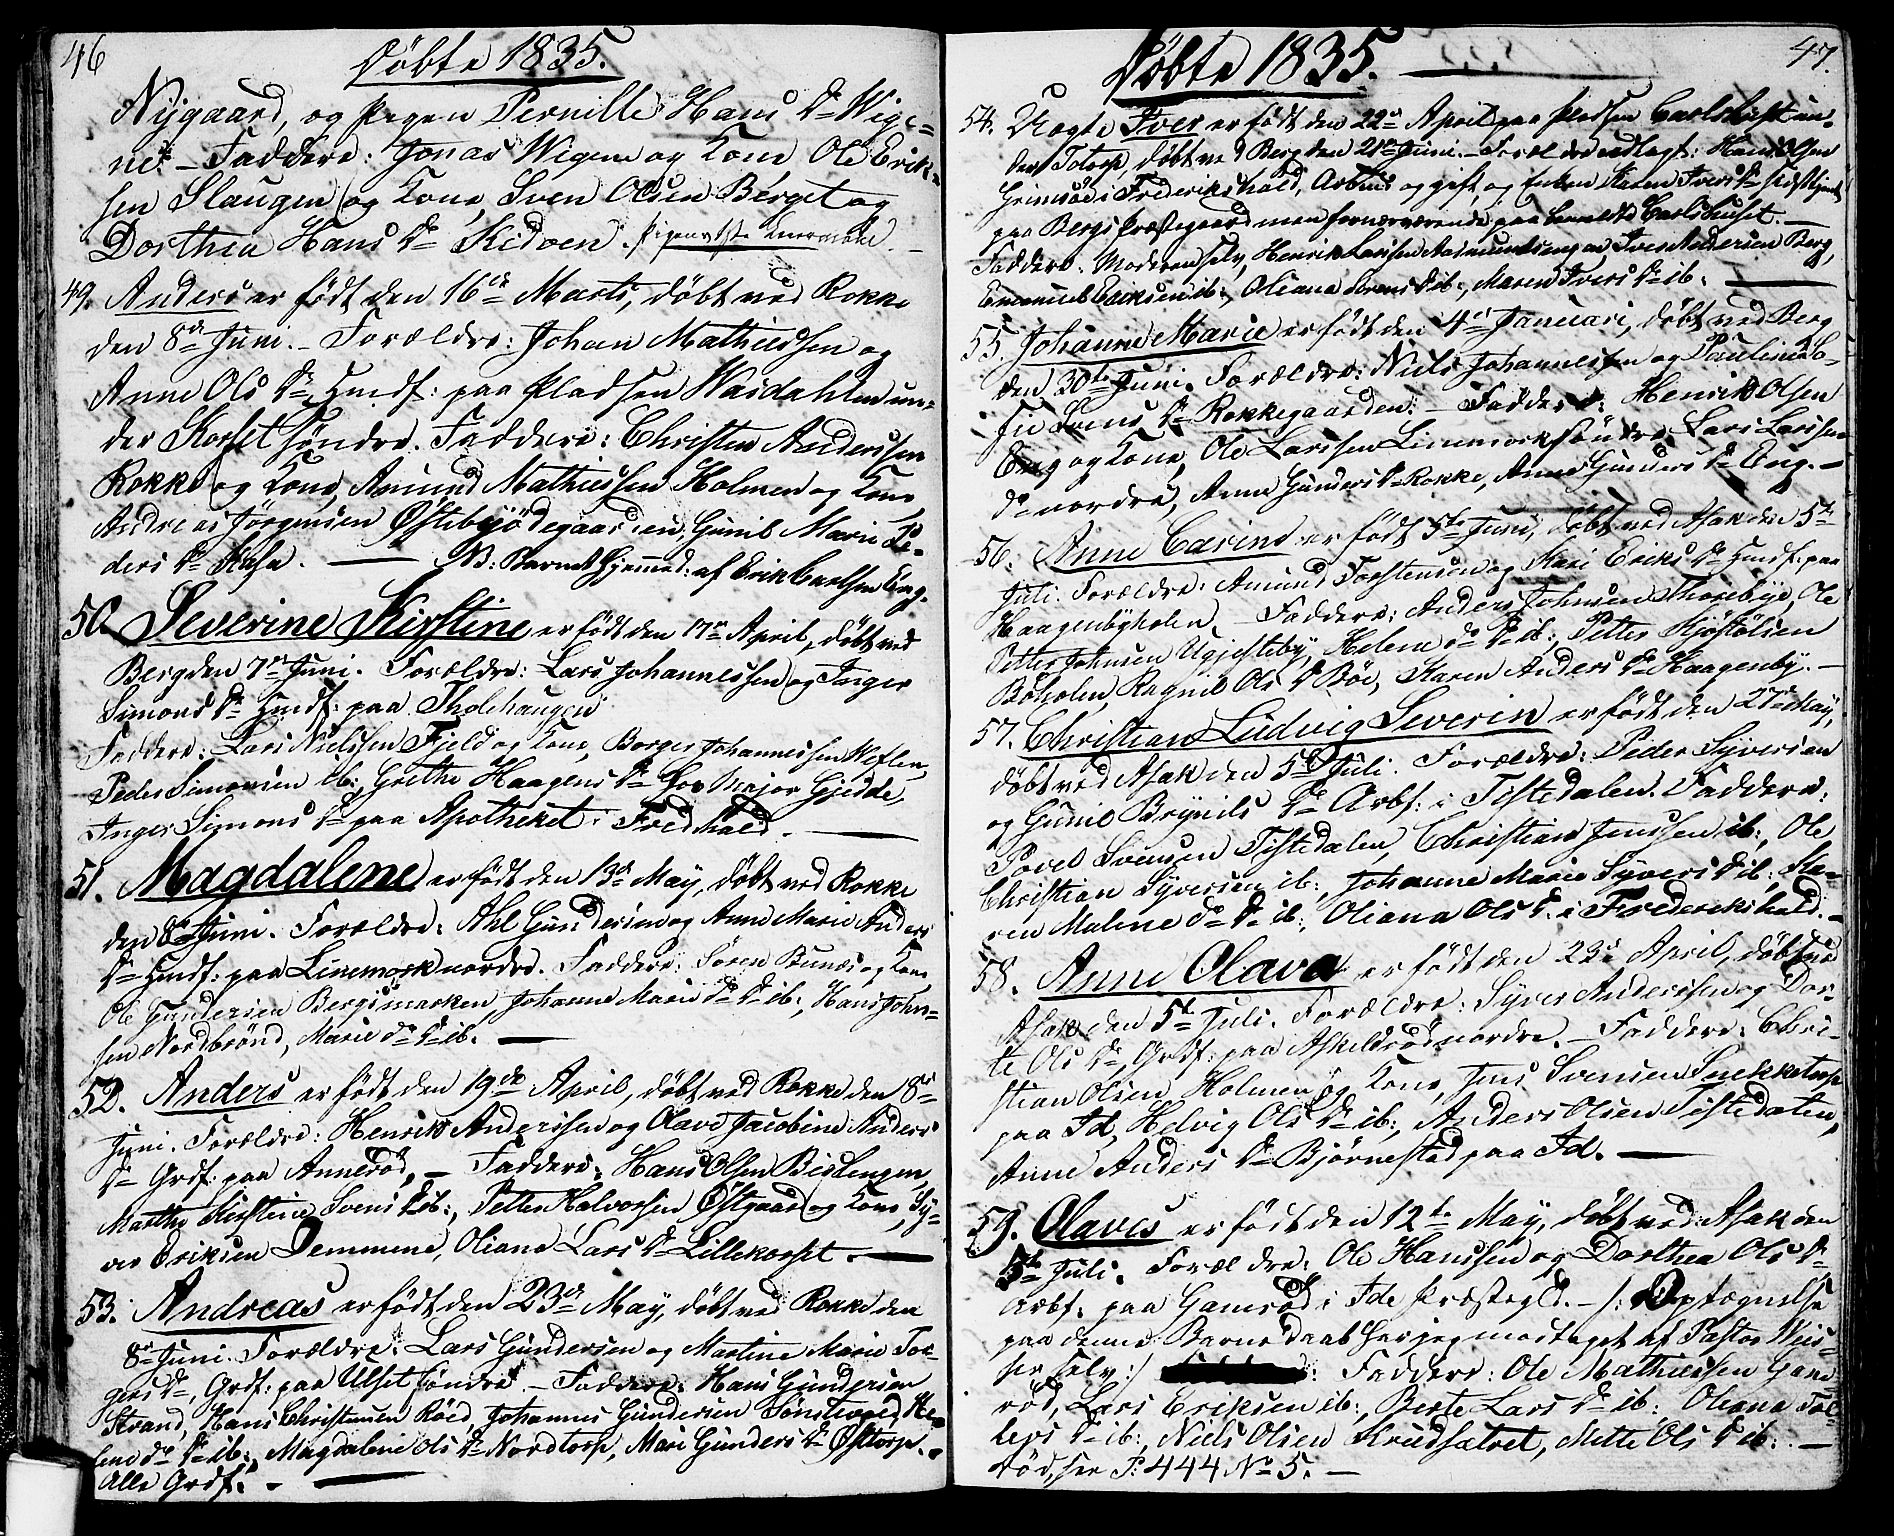 46
Döbte 1835.
Nygaard, og Pigen Pernille Hans D. Wige-
ne. - Faddere: Jonas Wigene og Kone, Ole Erik-
sen Slaugen og Kone, Sven Olsen Berget og
Dorthea Hans D. Kidoen.
49. Anders er födt den 16de Marts, döbt ved Rokke
den 8de Juni. - Forældre: Johan Mathiesen og
Anne Ols D. Husf: paa Pladsen Wasdahlen un-
der Korset söndre. Faddere: Christen Anderssen
Rokke og Kone, Amund Mathiessen Holmen og Kone
Andreas Jörgensen Östebyödegaarden, Gunil Marie Pe-
ders D. Kasa. - NB: Barnet hjemmed: af Erik Carlsen Eng.
50. Severine Kirstine er födt den 17de April, döbt ved
Berg den 7de Juni. Forældre: Lars Johannessen og Inger
Simons D. Husf: paa Tholehaugen
Faddere: Lars Nielssen Fjeld og Kone, Borger Johannessen Weflen,
Peder Simonsen ib:, Grethe Haagens D. hos Major Gjedde,
Inger Simons D. paa Apotheket i Fredhald.
51. Magdalene er födt den 13de May, döbt ved Rokke
den 8de Juni. Forældre: Ahl Gundersen og Anne Marie Anders
D. Husf: paa Linemork nordre. Faddere: Sören Bunæs og Kone
Ole Gundersen Bergsmarken, Johanne Marie do D. ib:, Hans John-
sen Nordbrönd, Marie do D. ib.
52. Anders er födt den 19de April, döbt ved Rokke den 8de
Juni. Forældre: Henrik Anderssen og Olave Jacobine Anders
D. Grdf: paa Anneröd, - Faddere: Hans Olsen Bislengen,
Marthe Kirstine Svens D. ib:, Petter Halvorsen Östgaard og Kone, Sy-
ver Eriksen Demmene, Oliane Lars D. Lillekorset.
53. Andreas er födt den 23de May, döbt ved Rokke den
8de Juni. Forældre: Lars Gundersen og Martine Marie Tor-
gers D., Grdf: paa Ulset söndre. - Faddere: Hans Gundersen
Strand, Hans Christensen Röed, Johannes Gundersen Tönsleröed, He-
lene do D. ib:, Magdalene Ols D. Nordtorp, Mari Gunders D. Östtorp.
Alle Grdf.
47.
Döbte 1835.
54. Uægte Iver er födt den 22de April paa Pladsen Carlshuset un-
der Totorp, döbt ved Berg den 21de Juni. - Forældre udlagt: Hans Olsen
Grimsöe i Frederikshald, Arbmd og gift, og Enken Karen Ivers D. sidst tjent
paa Bergs Præstegaard men for nærværende paa bemeldte Carlshuset.
Faddere: Moderen selv, Henrik Larssen Aasmundsengen, Iver Andersen Berg,
Emanuel Ericksen ib:, Oliana Svens D. ib:, Maren Ivers D. ib:
55. Johanne Marie er födt den 4de Januari, döbt ved Berg
den 30te Juni. Forældre: Niels Johannessen og Pauline So-
fie Svens D. Rokkegaarden. - Faddere: Henrik Olsen
Eng og Kone, Ole Larssen Linnemork söndre, Lars Larssen
do nordre, Anne Gunders D. Rokke, Anne Gunders D. Eng. -
56. Anne Carine er födt 5te Juni, döbt ved Asak den 5te
Juli. Forældre: Amund Torstensen og Mari Eriks D. Husf: paa
Haagenbyholen. - Faddere: Anders Johnsen Thorebye, Ole
Petter Johnsen Ugjesteby, Helene do D. ib:, Petter Kjöstolsen
Böholen, Ragnil Ols D. Böe, Karen Anders D. Haagenby. -
57. Christian Ludvig Severin er födt den 27de May,
döbt ved Asak den 5te Juli. Forældre: Peder Syversen
og Gunil Brynils D. Arbf: i Tistedalen. Faddere:
Povel Svensen Tistedalen, Christian Jenssen ib:, Ole
Christian Syversen ib:, Johanne Marie Syvers D. ib:, Ka-
ren Malene do D. ib:, Oliana Ols D. i Frederikshald. -
58. Anne Olava er födt den 23de April, döbt ved
Asak den 5te Juli. Forældre: Syver Anderssen og Dor-
te Ols D., Grdf: paa Askeldröd nordre. - Faddere: Chri-
stian Olsen Holmen og Kone, Jens Svensen Snekketorp
paa Id, Helvig Ols D. ib:, Anders Olsen Tistedalen,
Anne Anders D. Björnestad paa Id.
59. Olaves er födt den 12te May, döbt ved Asak den
5te Juli. Forældre: Ole Hanssen og Dorthea Ols D.
Arbf: paa Gamröd i Ide Præstegd. - /: Optegnelse
paa denne Barnedaab har jeg modtaget af Pastor Weis-
ser selv :/ Faddere: Ole Mathiessen Gam-
röd, Lars Eriksen ib:, Berte Lars D. ib: Oliana Tol-
lefs D. ib:, Niels Olsen Krudsætret, Mette Ols D. ib: -
död, see P: 444 No 5. -